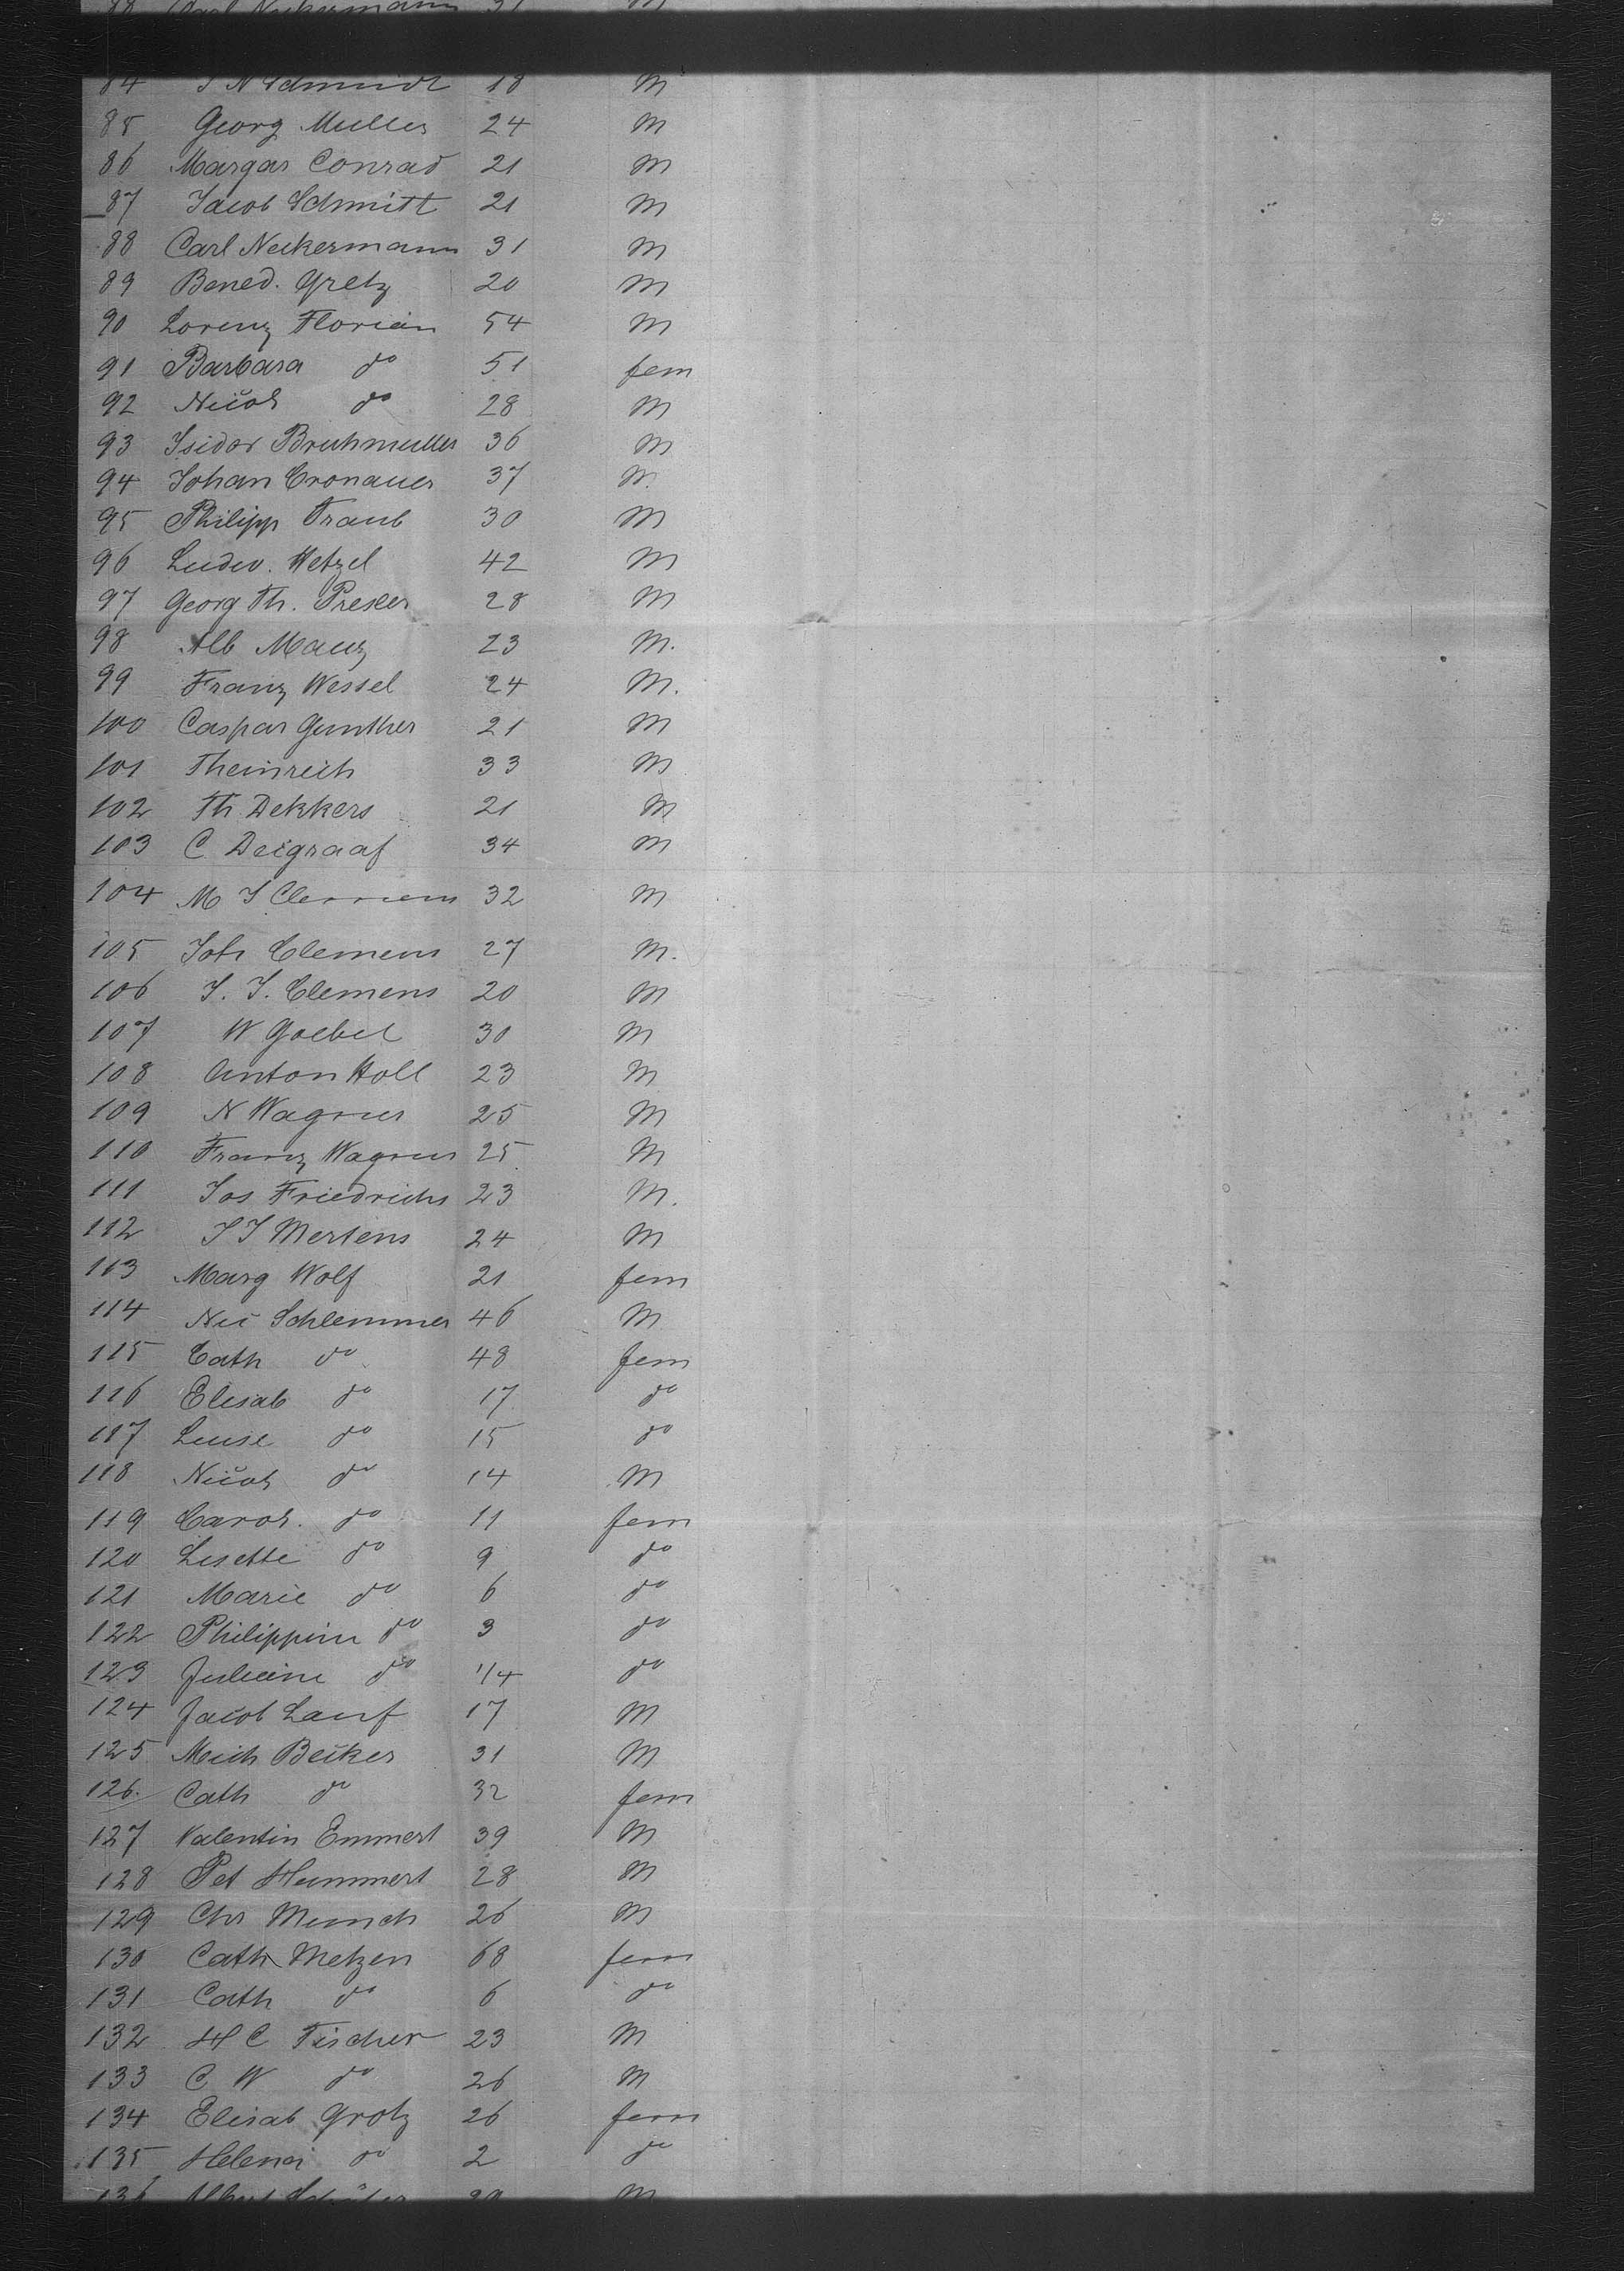 88 Carl Neckermann 31 M
84 J N Schmidt 18 M
85 Georg Muller 24 M
86 Margar Conrad 21 M
87 Jacob Schmitt 21 M
88 Carl Neckermann 31 M
89 Bened. Gretz 20 M
90 Lorenz Florian 54 M
91 Barbara do 51 fem
92 Nicol do 28 M
93 Isidor Bruhmuller 36 M
94 Johan Cronauer 37 M.
95 Philipp Traub 30 M
96 Ludw. Hetzel 42 M
97 Georg Th. Presler 28 M
98 Alb Mauz 23 M.
99 Franz Wessel 24 M.
100 Caspar Gunther 21 M
101 Theinrich 33 M
102 Th Dekkers 21 M
103 C Deigraaf 34 M
104 M J Clemens 32 M
105 Joh Clemens 27 M.
106 J. J. Clemens 20 M
107 W Goebel 30 M
108 Anton Holl 23 M
109 N Wagner 25 M
110 Franz Wagner 25 M
111 Jos Friedrichs 23 M.
112 J J Mertens 24 M
113 Marg Wolf 21 fem
114 Nic Schlemmer 46 M
115 Cath do 48 fem
116 Elisab do 17 do
117 Luise do 15 do
118 Nicol do 14 M
119 Carol. do 11 fem
120 Lisette do 9 do
121 Marie do 6 do
122 Philippine do 3 do
123 Juliane do 1/4 do
124 Jacob Lauf 17 M
125 Mich Becker 31 M
126. Cath do 32 fem
127 Valentin Emmert 39 M
128 Pet Hummert 28 M
129 Chr Munch 26 M
130 Cath Metzen 68 fem
131 Cath do 6 do
132 H C Fischer 23 M
133 C W do 26 M
134 Elisab Grotz 26 fem
135 Helena do 2 do
136 Albert M